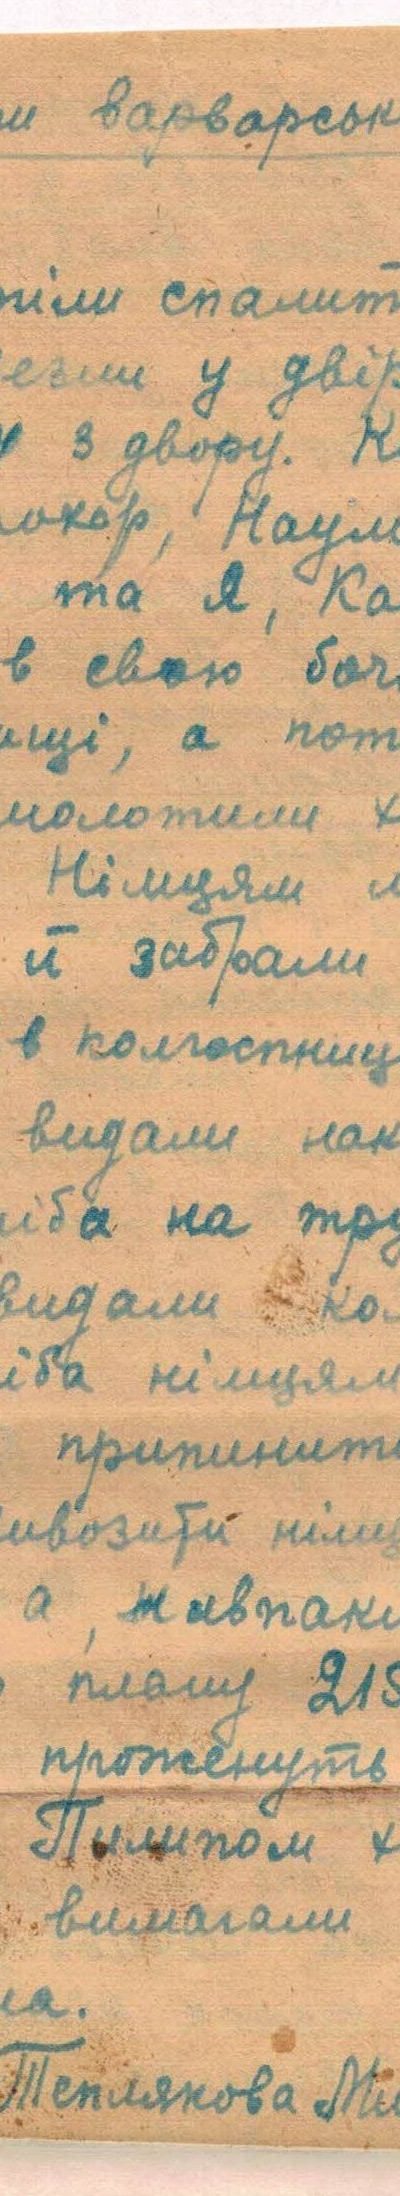 ри варварськ
тіли спалит
везли у двір
х з двору. К
рокор, Наум
та я, Ка
в свою боч
ищі, а пот
молотили х
Німцям м
й забрали
в колгоспниц
видали нак
ліба на тру
видали кол
ліба німцям
припинити
вивозити німц
а, навпаки
плану 215
проженуть
Пилипом х
вимагали
ла.
Теплякова Ми